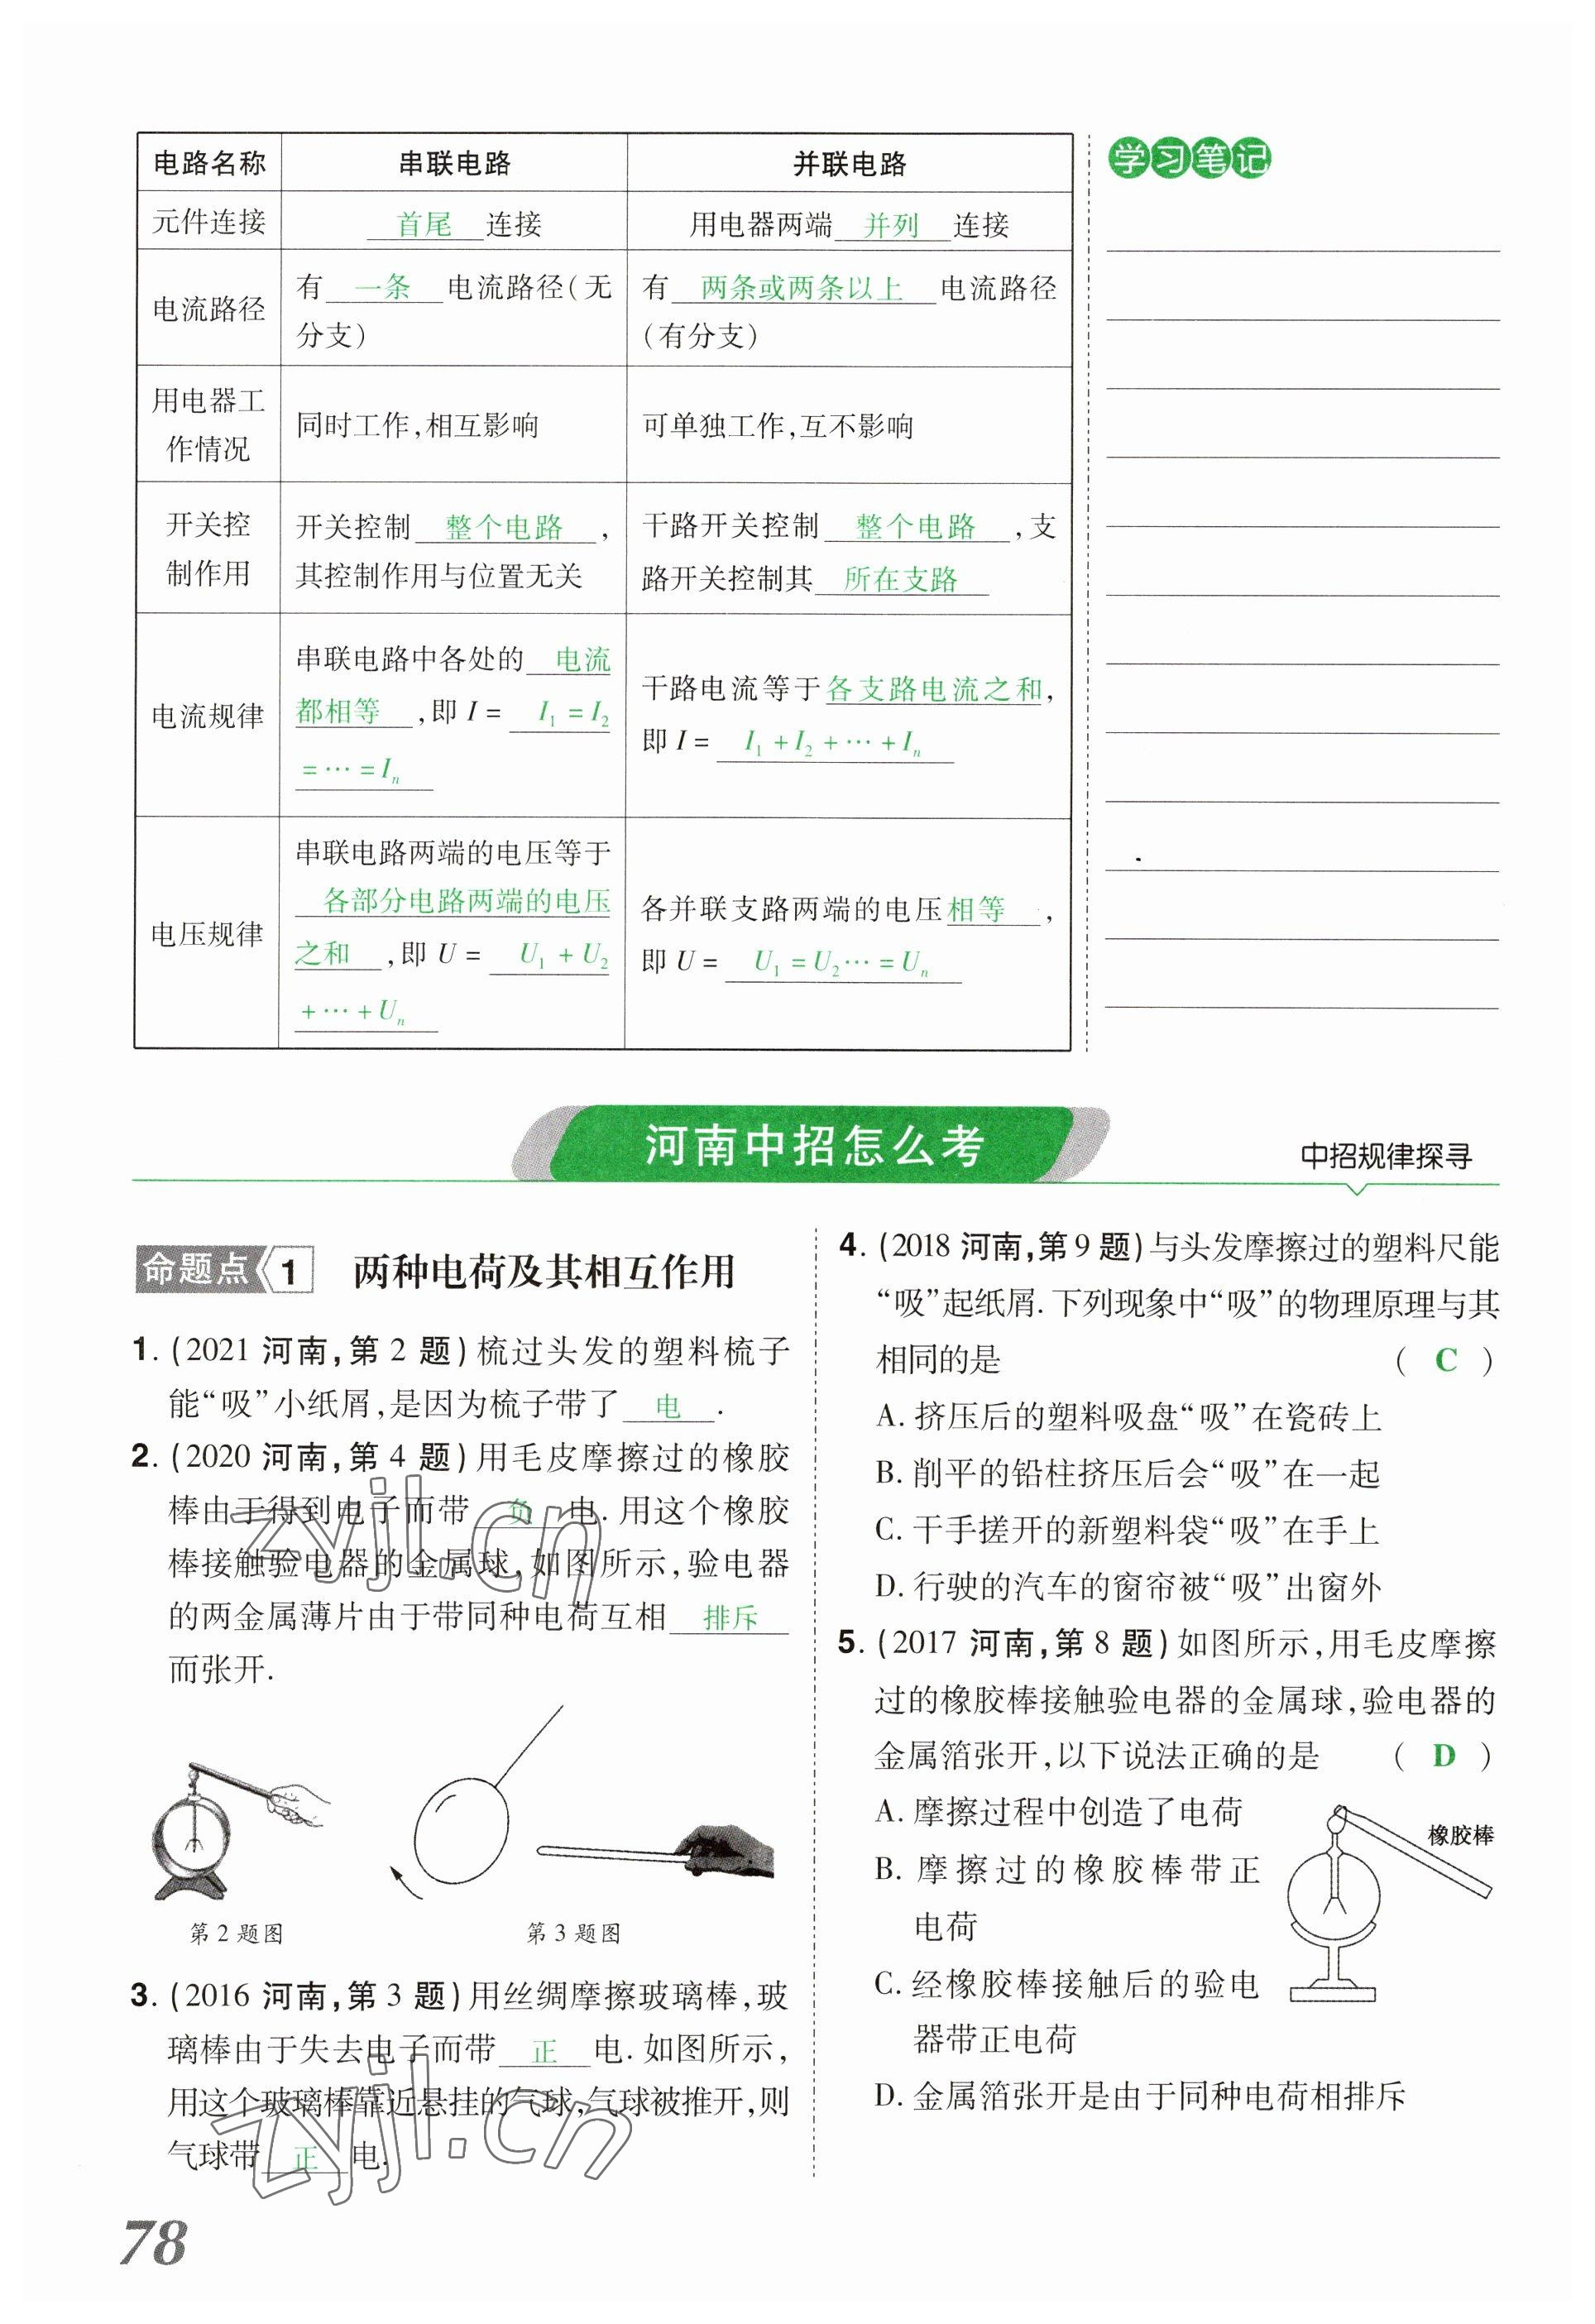 学习笔记
电路名称 串联电路 并联电路
元件连接 首尾 连接 用电器两端 并列 连接
电流路径 有 一条 电流路径(无分支) 有 两条或两条以上 电流路径(有分支)
用电器工作情况 同时工作,相互影响 可单独工作,互不影响
开关控制作用 开关控制 整个电路 ,其控制作用与位置无关 干路开关控制 整个电路 ,支路开关控制其 所在支路
电流规律 串联电路中各处的 电流都相等 ,即 I = I₁ = I₂ = … = Iₙ 干路电流等于各支路电流之和,即 I = I₁ + I₂ + … + Iₙ
电压规律 串联电路两端的电压等于 各部分电路两端的电压之和 ,即 U = U₁ + U₂ + … + Uₙ 各并联支路两端的电压相等 ,即 U = U₁ = U₂… = Uₙ
河南中招怎么考
中招规律探寻
命题点 1 两种电荷及其相互作用
1. (2021 河南,第 2 题)梳过头发的塑料梳子
能“吸”小纸屑,是因为梳子带了 电 .
2. (2020 河南,第 4 题)用毛皮摩擦过的橡胶
棒由于得到电子而带 负 电. 用这个橡胶
棒接触验电器的金属球,如图所示,验电器
的两金属薄片由于带同种电荷互相 排斥
而张开.
第 2 题图 第 3 题图
3. (2016 河南,第 3 题)用丝绸摩擦玻璃棒,玻
璃棒由于失去电子而带 正 电. 如图所示,
用这个玻璃棒靠近悬挂的气球,气球被推开,则
气球带 正 电.
4. (2018 河南,第 9 题)与头发摩擦过的塑料尺能
“吸”起纸屑. 下列现象中“吸”的物理原理与其
相同的是 ( C )
A. 挤压后的塑料吸盘“吸”在瓷砖上
B. 削平的铅柱挤压后会“吸”在一起
C. 干手搓开的新塑料袋“吸”在手上
D. 行驶的汽车的窗帘被“吸”出窗外
5. (2017 河南,第 8 题)如图所示,用毛皮摩擦
过的橡胶棒接触验电器的金属球,验电器的
金属箔张开,以下说法正确的是 ( D )
A. 摩擦过程中创造了电荷
B. 摩擦过的橡胶棒带正
电荷
C. 经橡胶棒接触后的验电
器带正电荷
D. 金属箔张开是由于同种电荷相排斥
橡胶棒
zyjl.cn
zyjl.cn
78